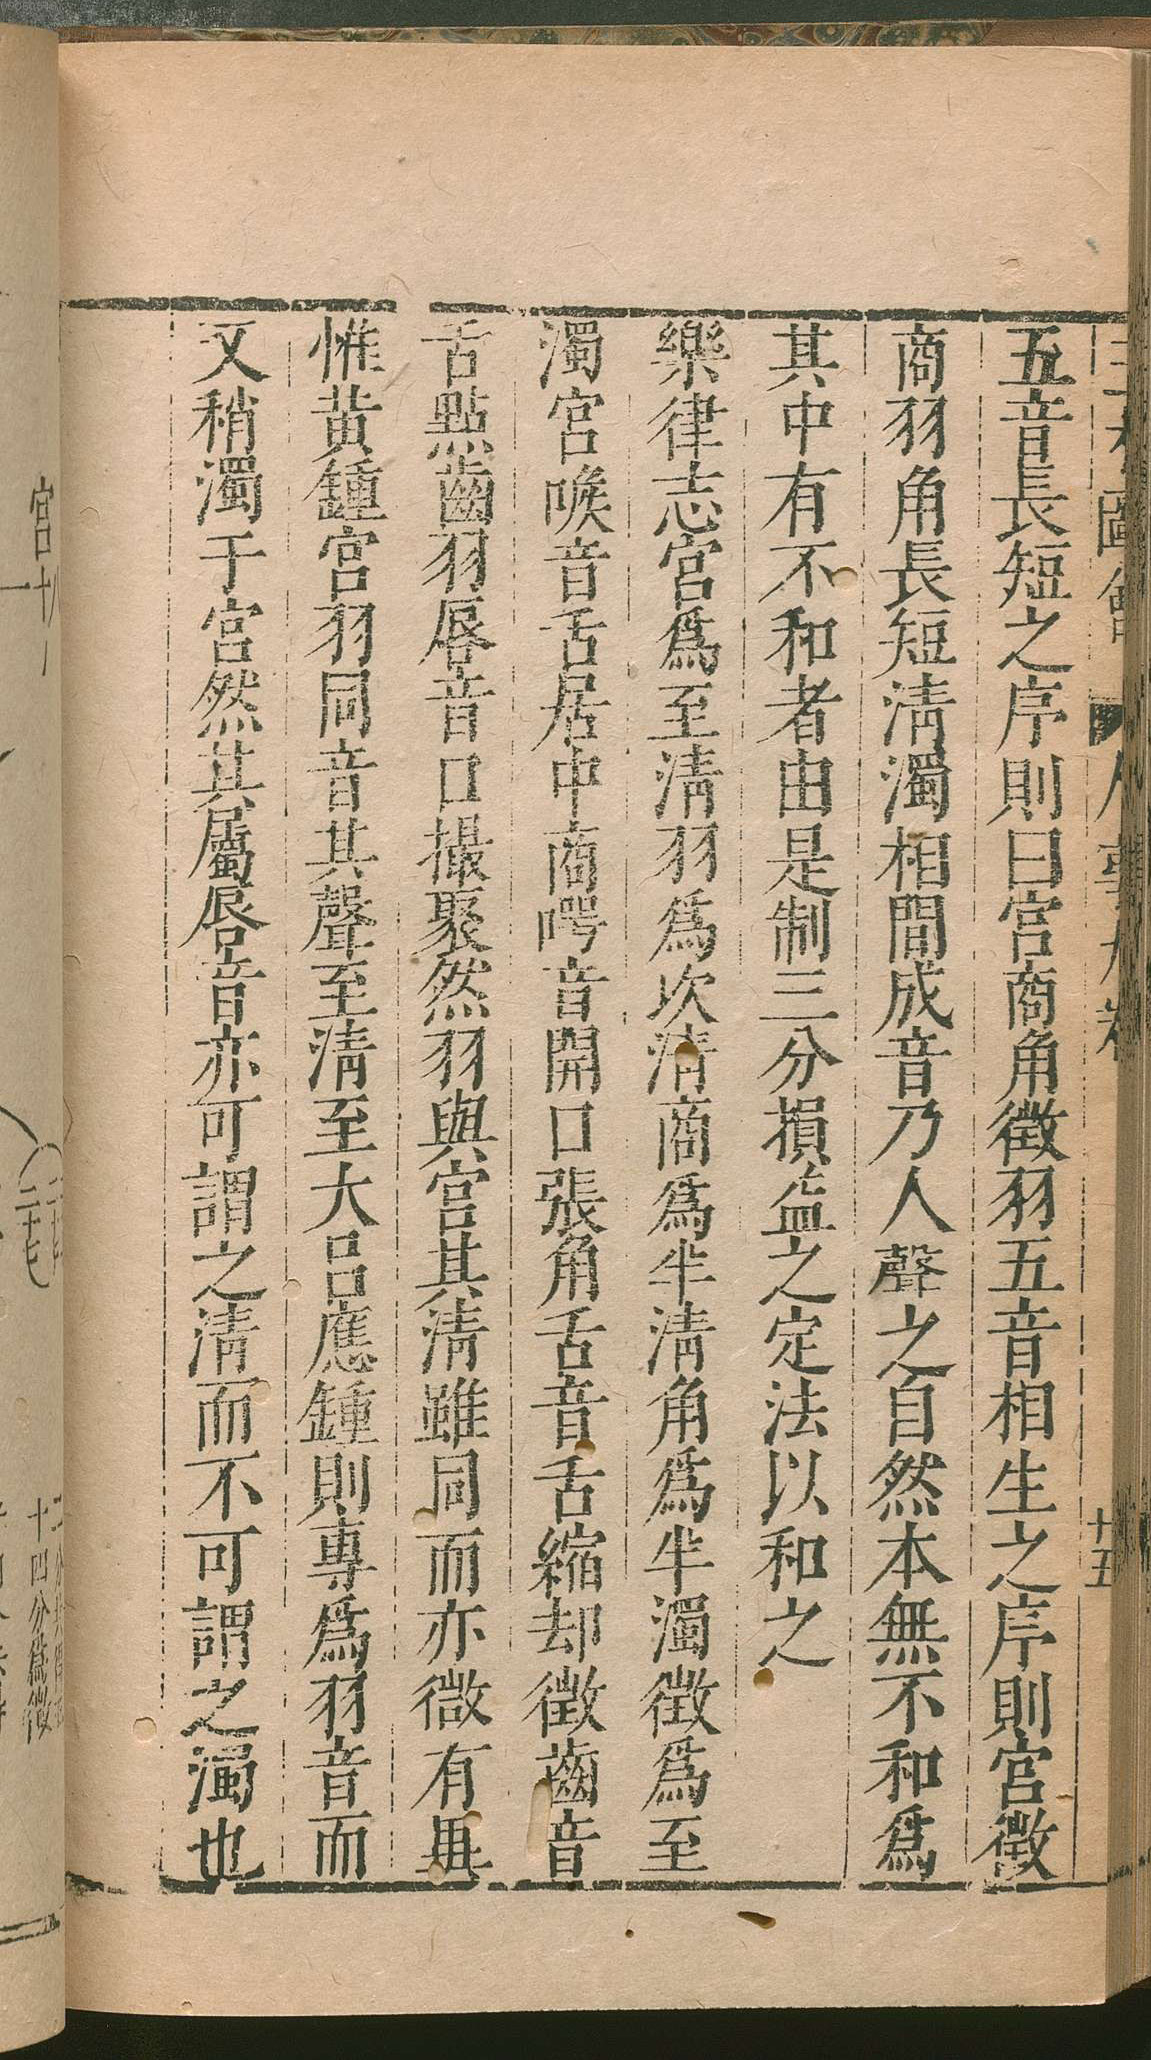 五音長短之序則曰宮商角徵羽五音相生之序則宮徵
商羽角長短淸濁相間成音乃人聲之自然本無不和爲
其中有不和者由是制三分損益之定法以和之
樂律志宮爲至淸羽爲次淸商爲半淸角爲半濁徵爲至
濁宮喉音舌居中商咢音開口張角舌音舌縮却徵齒音
舌點齒羽唇音口撮聚然羽與宮其淸雖同而亦微有異
惟黃鍾宮羽同音其聲至淸至大呂應鍾則專爲羽音而
又稍濁于宮然其屬唇音亦可謂之淸而不可謂之濁也
十五